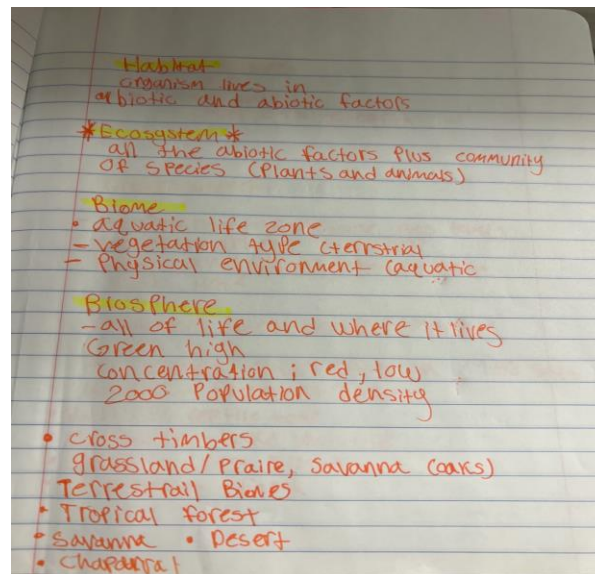 Habitat
organism lives in
abiotic and abiotic factors
*Ecosystem*
all the abiotic factors plus community
of species (plants and animals)
Biome
• aquatic life zone
- vegetation type (terrstrial
- Physical environment (aquatic
Biosphere
- all of life and where it lives
Green high
concentration; red, low
2000 Population density
• cross timbers
grassland/Praire, savanna (oaks)
Terrestrail Biomes
• Tropical forest
• Savanna • Desert
• Chaparral